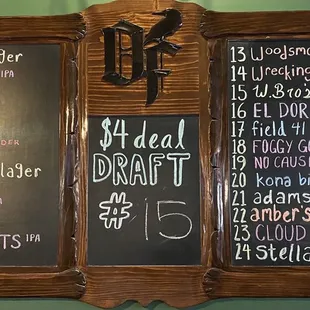 ager
IPA
DER
lager
TS IPA
DF
$4 deal
DRAFT
# 15
13 Woodsm
14 Wrecking
15 W.Bro's
16 EL DOR
17 field 41
18 FOGGY GO
19 NO CAUS
20 kona bi
21 adams
22 amber's
23 CLOUD
24 Stella